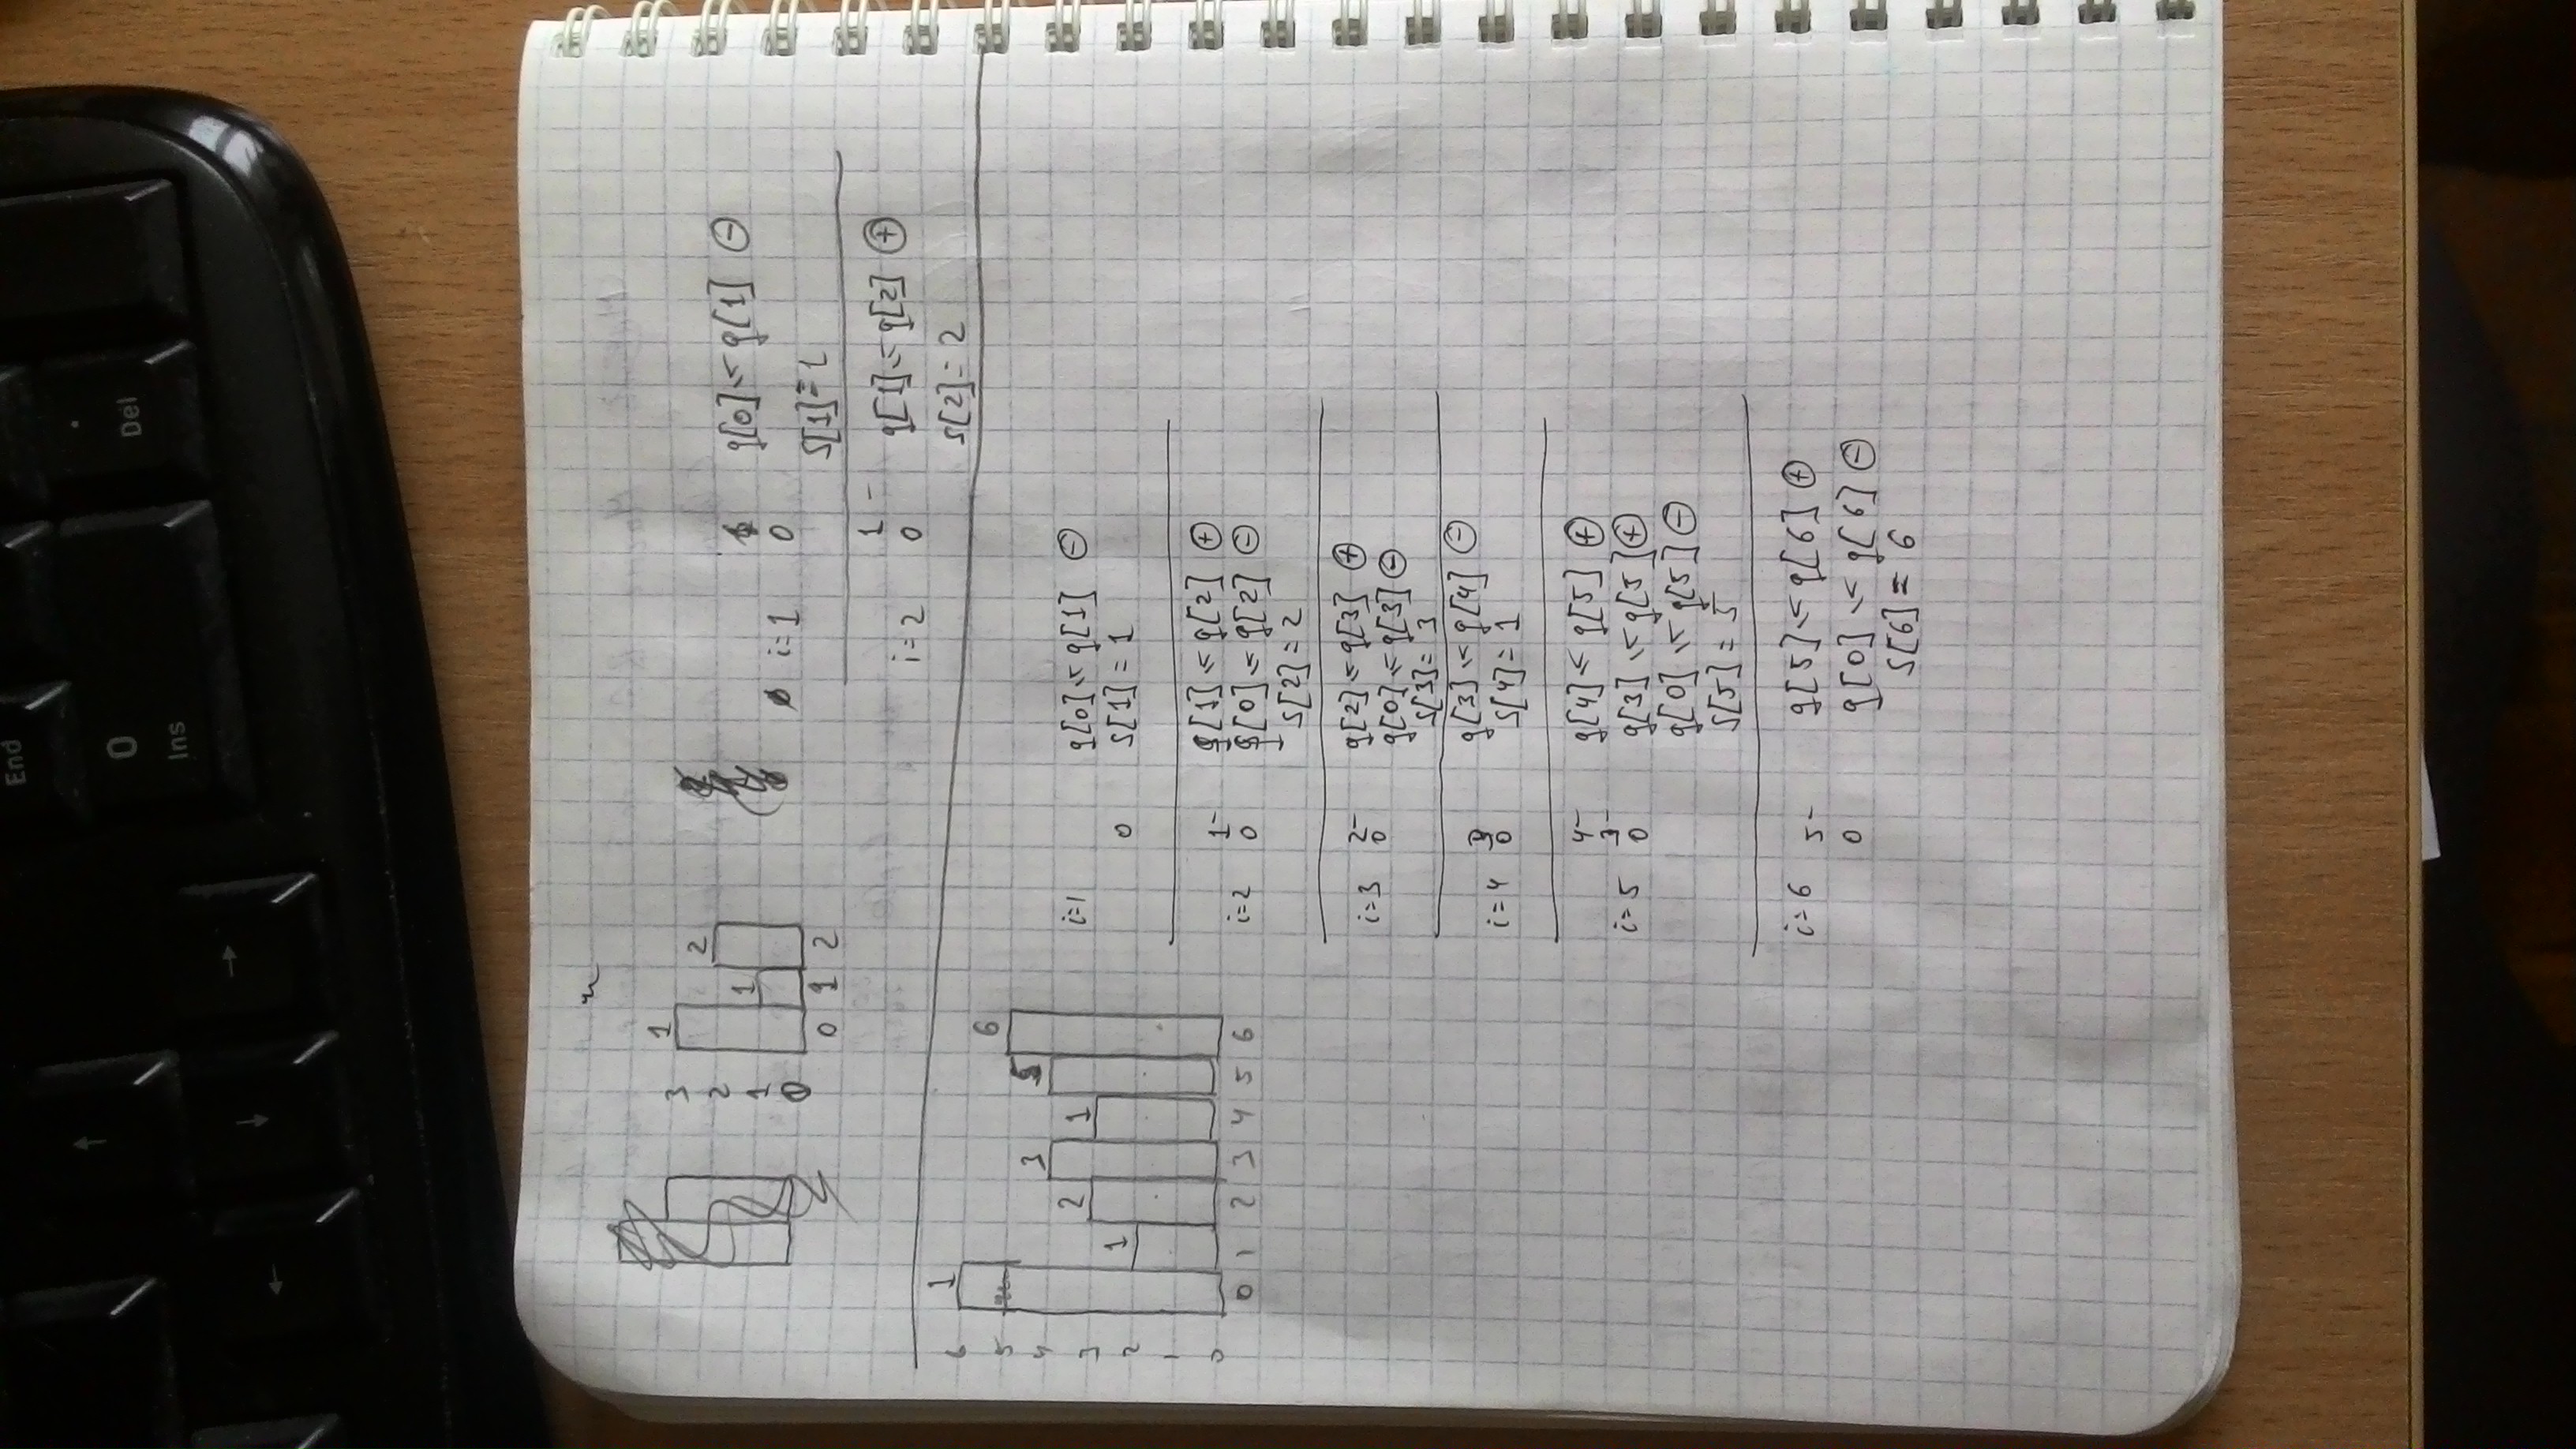 End
0
Ins
.
Del
↑
← ↓ →
3
2
1
0
1
1
2
0 1 2
i=1
0
g[0] ≤ g[1] ⊖
S[1]=1
i=2
1 -
0
g[1] ≤ g[2] ⊕
S[2]=2
6
5
4
3
2
1
0
1
1
2
3
1
5
6
0 1 2 3 4 5 6
i=1
0
g[0] ≤ g[1] ⊖
S[1]=1
i=2
1-
0
g[1] ≤ g[2] ⊕
g[0] ≤ g[2] ⊖
S[2]=2
i=3
2-
0
g[2] ≤ g[3] ⊕
g[0] ≤ g[3] ⊖
S[3]=3
i=4
3
0
g[3] ≤ g[4] ⊖
S[4]=1
i=5
4-
3-
0
g[4] ≤ g[5] ⊕
g[3] ≤ g[5] ⊕
g[0] ≤ g[5] ⊖
S[5]=5
i=6
5-
0
g[5] ≤ g[6] ⊕
g[0] ≤ g[6] ⊖
S[6]=6